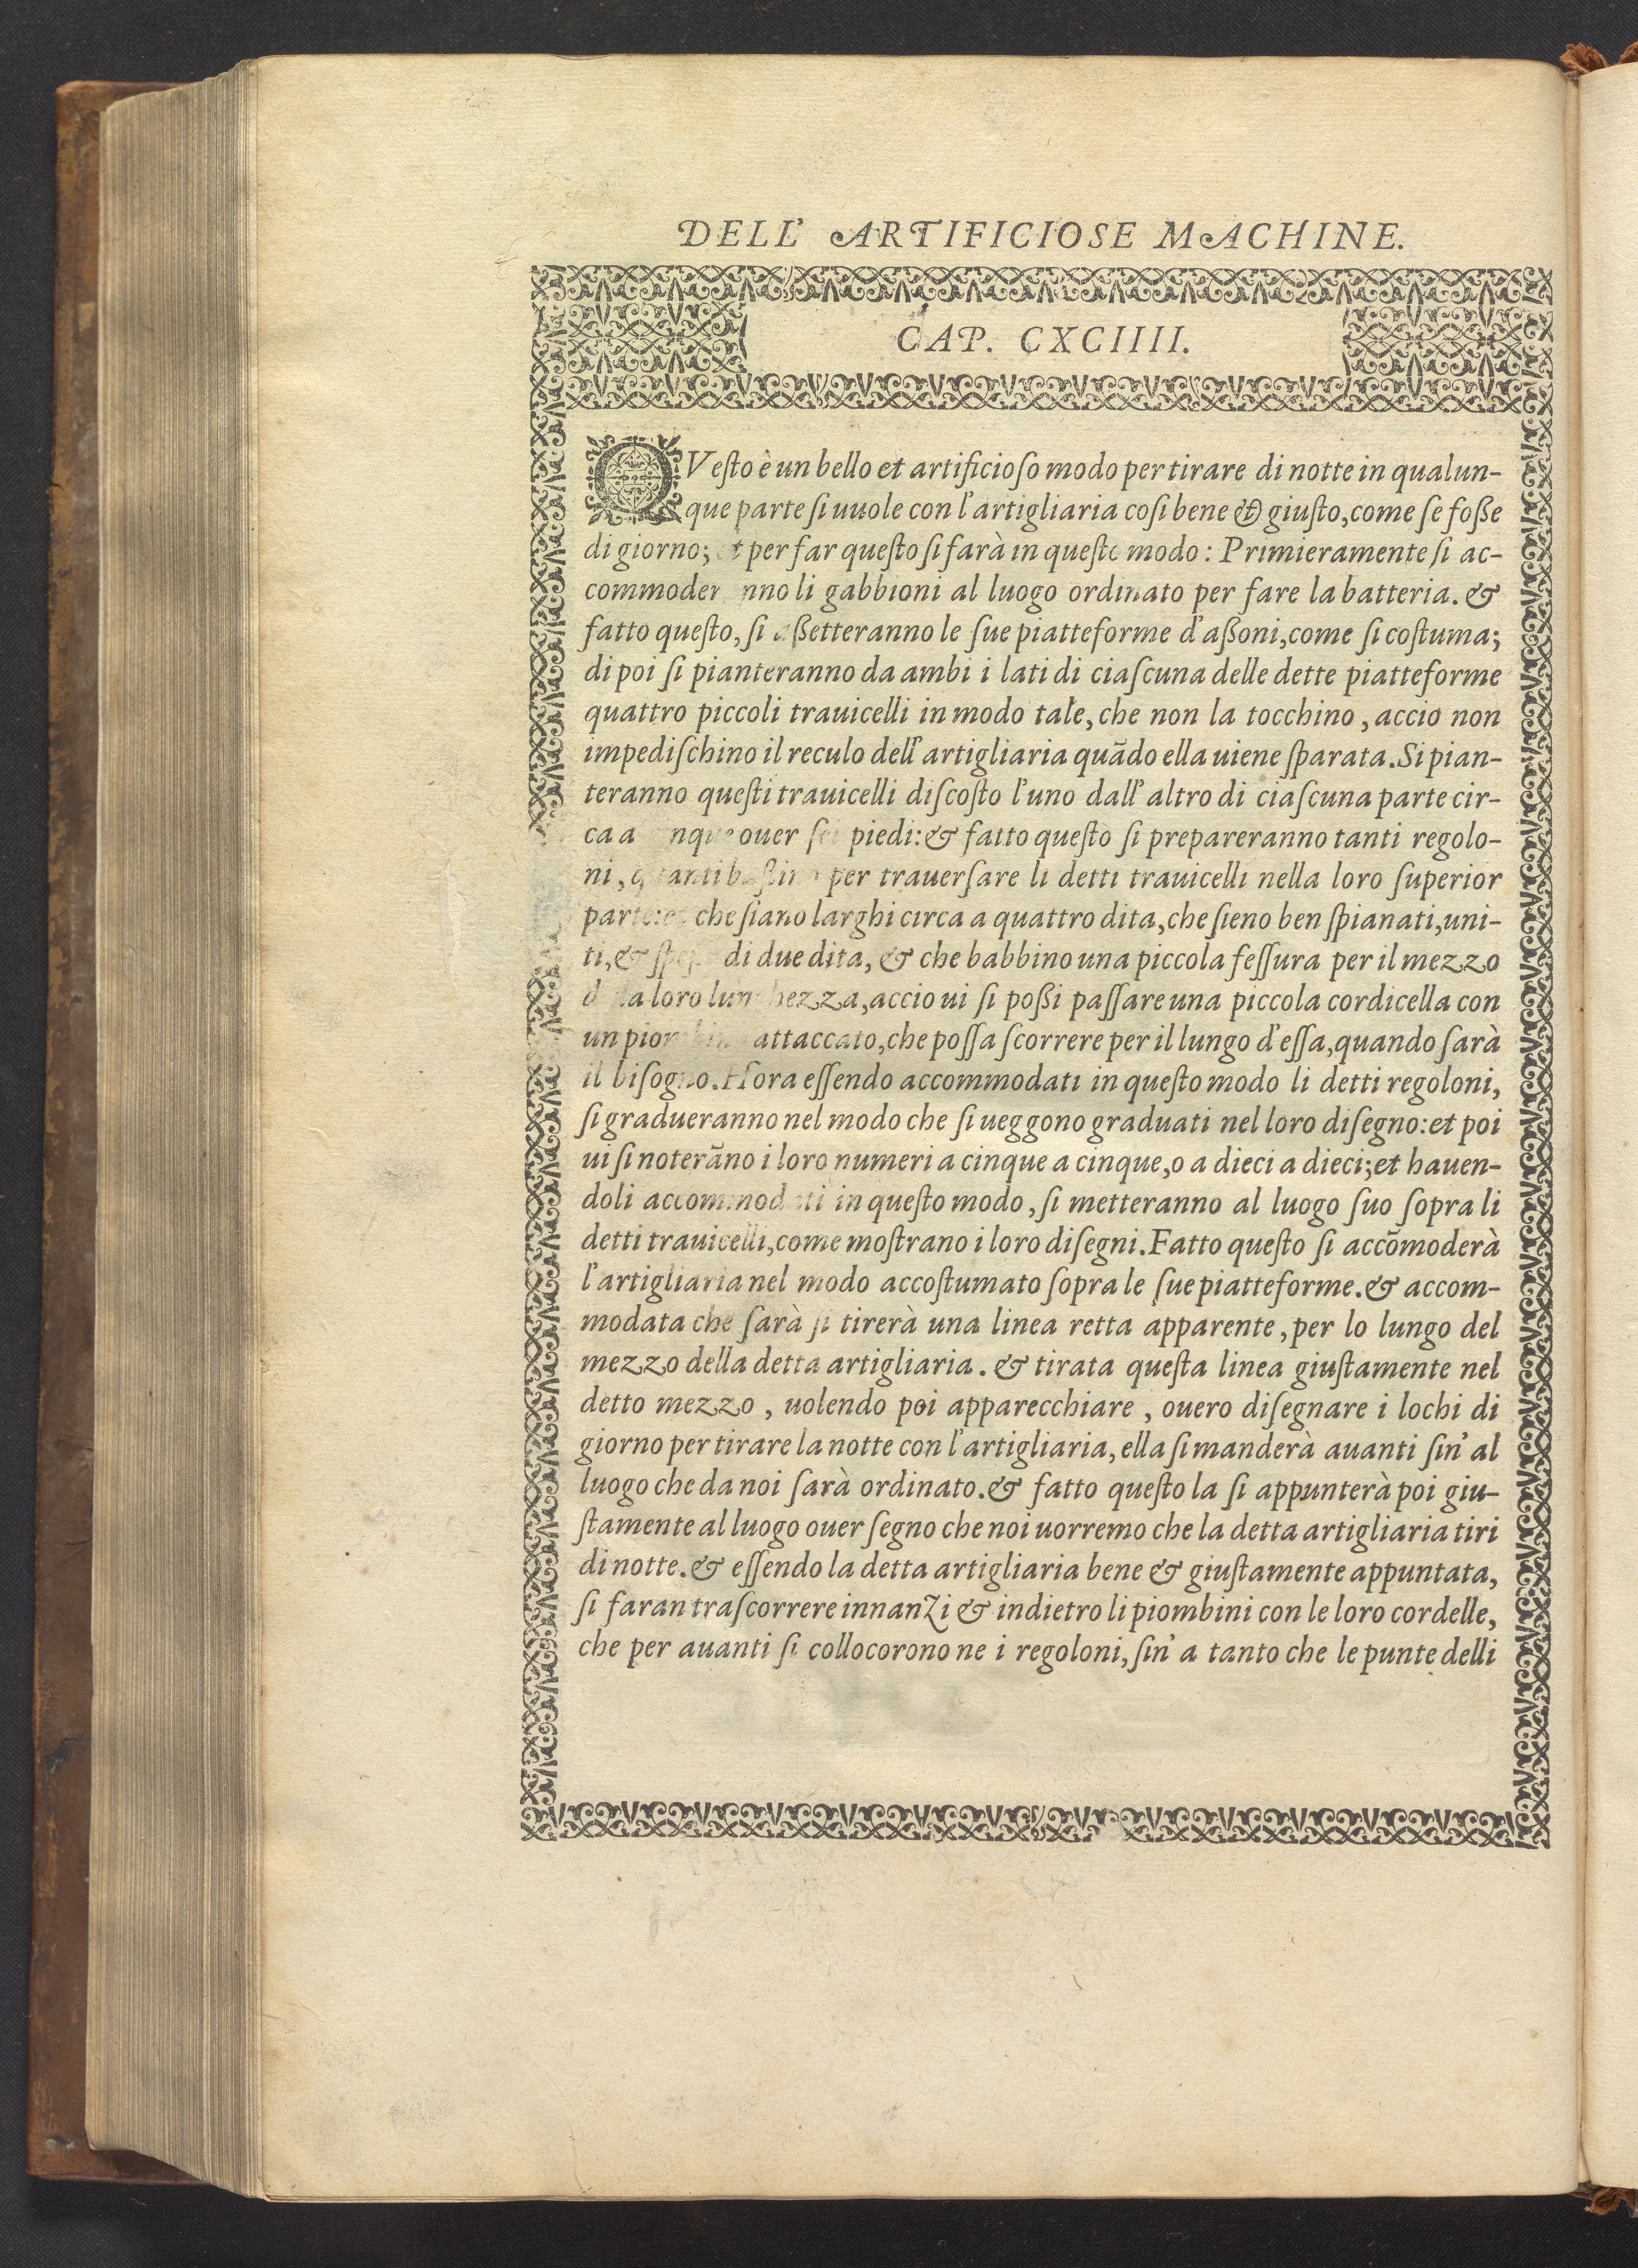 DELL' ARTIFICIOSE MACHINE.
CAP. CXCIIII.
QVesto è un bello et artificioso modo per tirare di notte in qualun-
que parte si uuole con l'artigliaria cosi bene & giusto, come se foße
di giorno; et per far questo si farà in questo modo: Primieramente si ac-
li gabbioni al luogo ordinato per fare la batteria. &
fatto questo, si aßetteranno le sue piatteforme d'aßoni, come si costuma;
di poi si pianteranno da ambi i lati di ciascuna delle dette piatteforme
quattro piccoli trauicelli in modo tale, che non la tocchino, accio non
impedischino il reculo dell'artigliaria quādo ella uiene sparata. Si pian-
teranno questi trauicelli discosto l'uno dall'altro di ciascuna parte cir-
ca a ouer sei piedi: & fatto questo si prepareranno tanti regolo-
ni, quanti per trauersare li detti trauicelli nella loro superior
parte: et che siano larghi circa a quattro dita, che sieno ben spianati, uni-
ti, & di due dita, & che habbino una piccola fessura per il mezzo
loro lunghezza, accio ui si poßi passare una piccola cordicella con
un attaccato, che possa scorrere per il lungo d'essa, quando sarà
il bisogno. Hora essendo accommodati in questo modo li detti regoloni,
si gradueranno nel modo che si ueggono graduati nel loro disegno: et poi
ui si noterāno i loro numeri a cinque a cinque, o a dieci a dieci; et hauen-
doli accommodati in questo modo, si metteranno al luogo suo sopra li
detti trauicelli, come mostrano i loro disegni. Fatto questo si accōmoderà
l'artigliaria nel modo accostumato sopra le sue piatteforme. & accom-
modata che sarà si tirerà una linea retta apparente, per lo lungo del
mezzo della detta artigliaria. & tirata questa linea giustamente nel
detto mezzo, uolendo poi apparecchiare, ouero disegnare i lochi di
giorno per tirare la notte con l'artigliaria, ella si manderà auanti sin'al
luogo che da noi sarà ordinato. & fatto questo la si appunterà poi giu-
stamente al luogo ouer segno che noi uorremo che la detta artigliaria tiri
di notte. & essendo la detta artigliaria bene & giustamente appuntata,
si faran trascorrere innanzi & indietro li piombini con le loro cordelle,
che per auanti si collocorono ne i regoloni, sin'a tanto che le punte delli